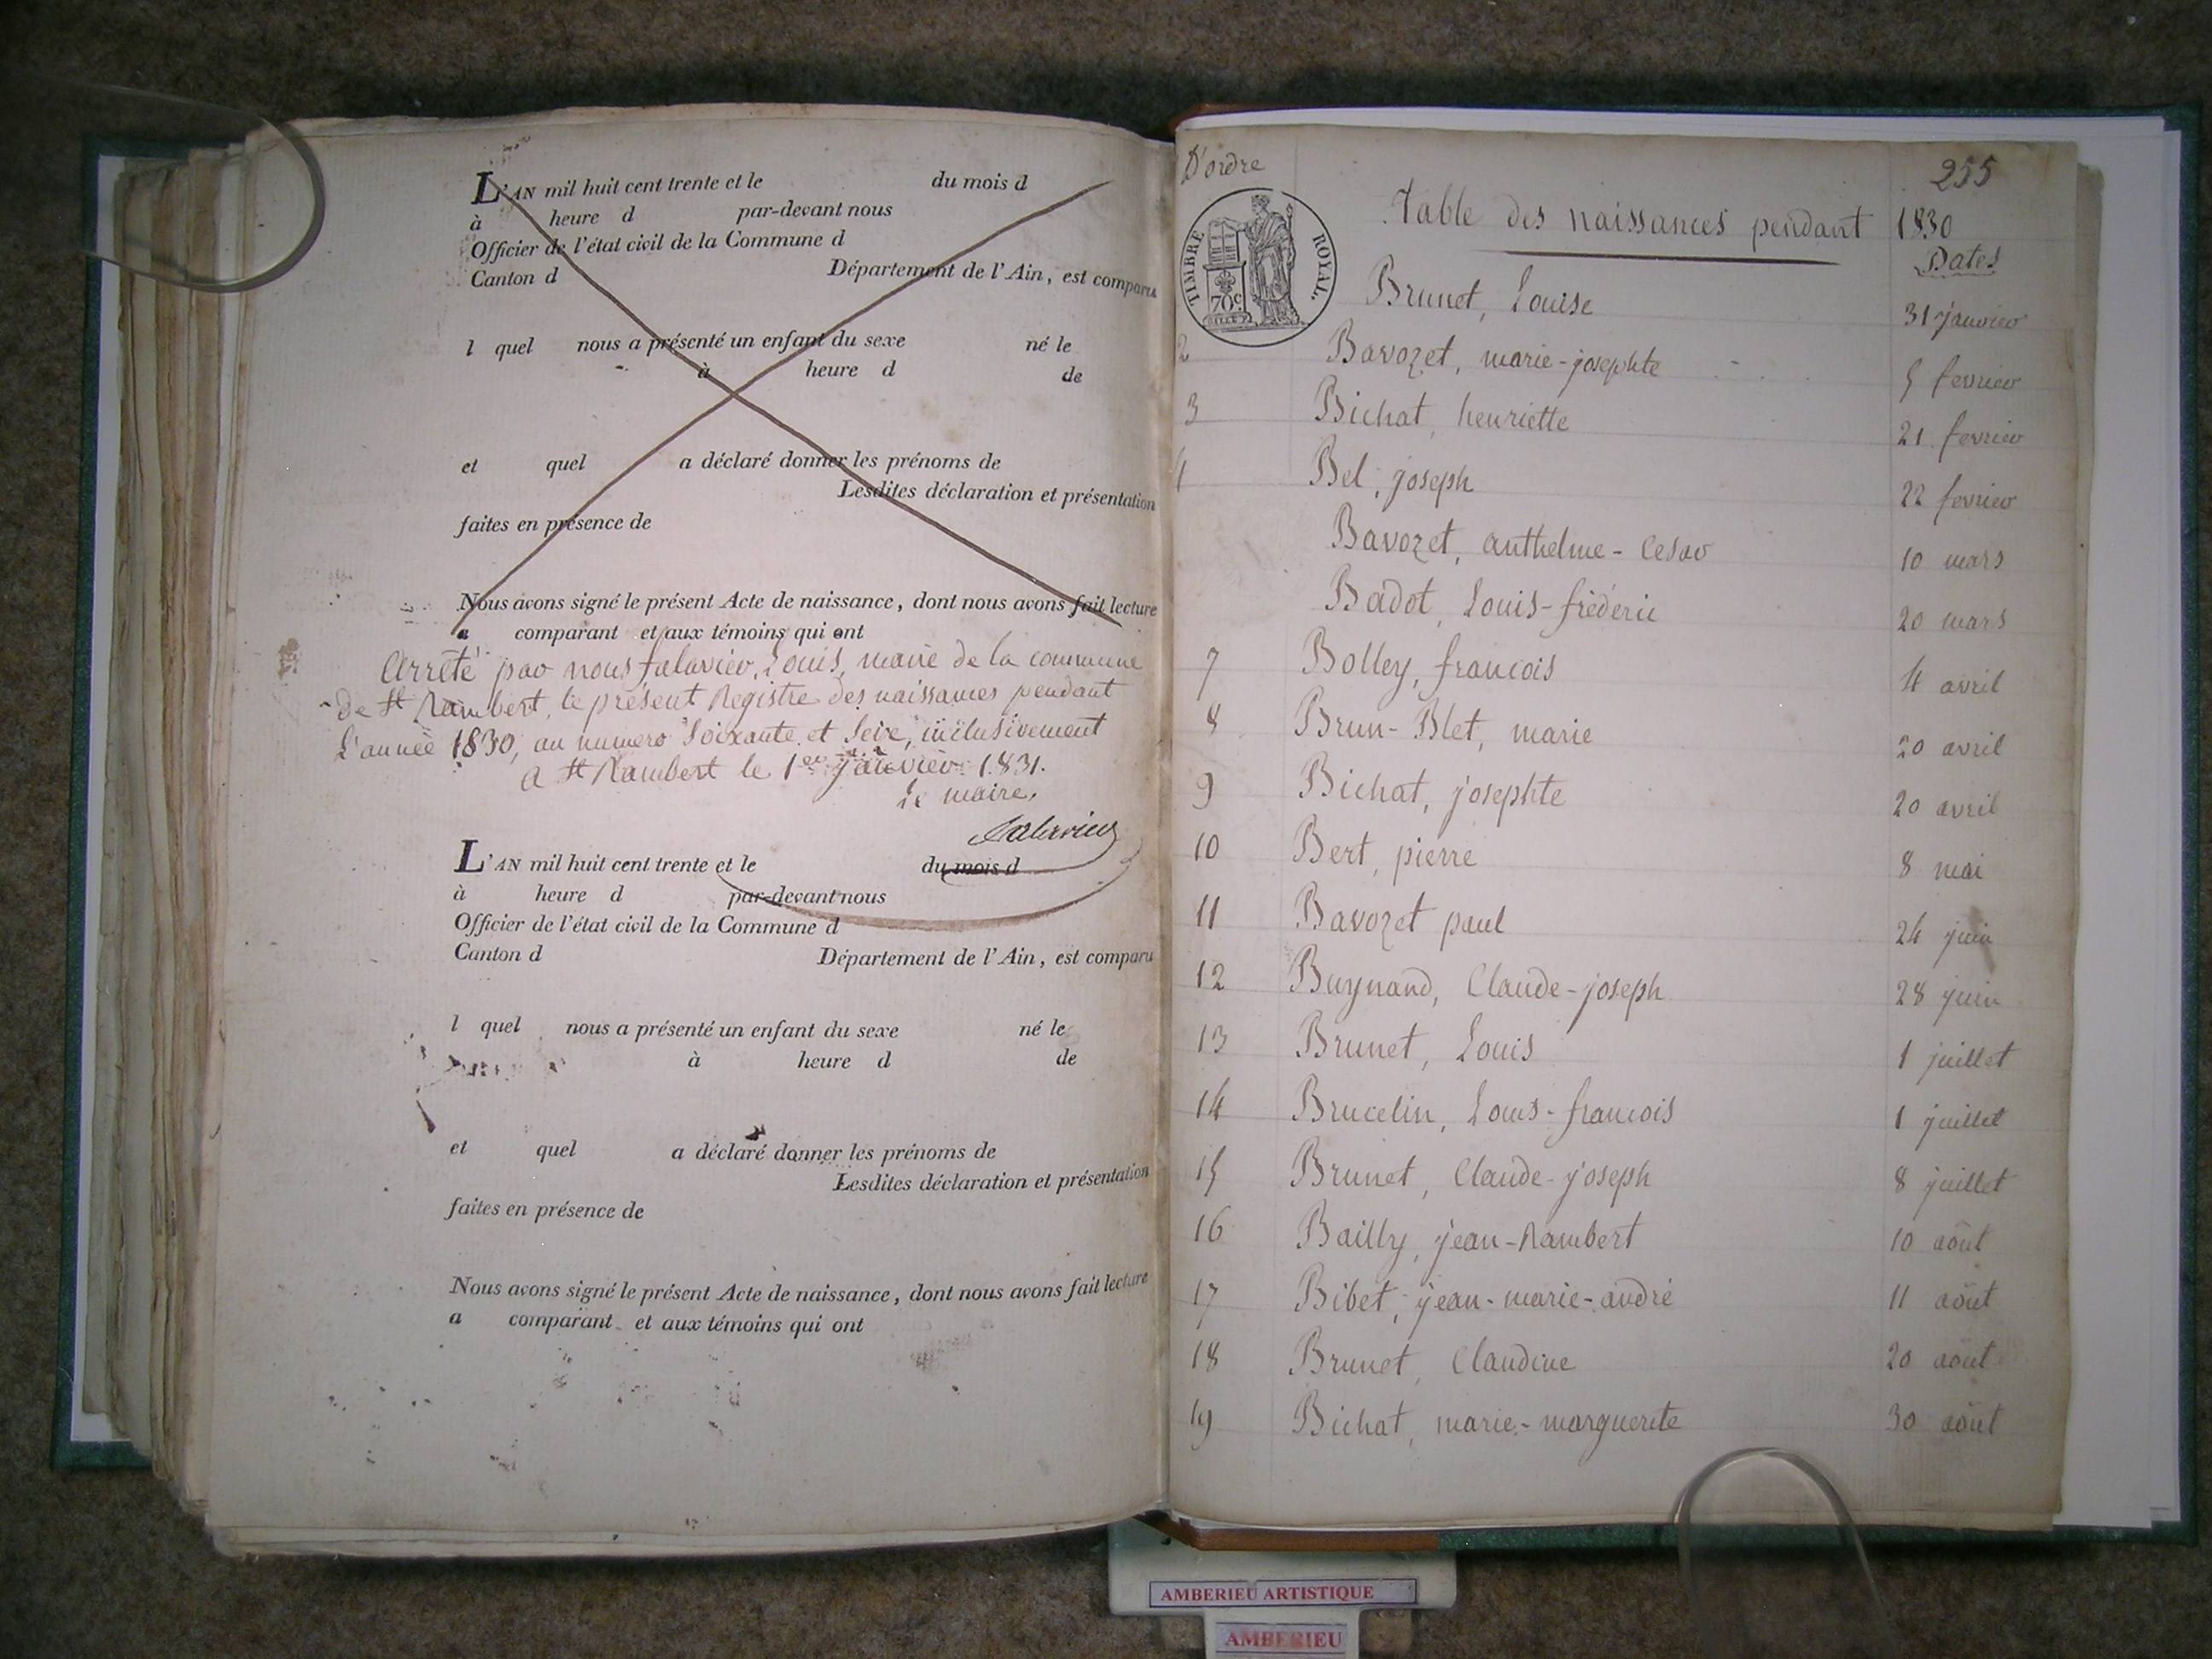 L'AN mil huit cent trente et le du mois d
à heure d par-devant nous
Officier de l'état civil de la Commune d
Canton d Département de l'Ain, est comparu
l quel nous a présenté un enfant du sexe né le
à heure d de
et quel a déclaré donner les prénoms de
Lesdites déclaration et présentation
faites en présence de
Nous avons signé le présent Acte de naissance, dont nous avons fait lecture
a comparant et aux témoins qui ont
Arrêté par nous falavier, Louis, maire de la commune
de St Rambert, le présent Registre des naissances pendant
L'année 1830, au numero Soixante et Seize, inclusivement
a St Rambert le 1er janvier 1831.
Le maire,
falavier
L'AN mil huit cent trente et le du mois d
à heure d par-devant nous
Officier de l'état civil de la Commune d
Canton d Département de l'Ain, est comparu
l quel nous a présenté un enfant du sexe né le
à heure d de
et quel a déclaré donner les prénoms de
Lesdites déclaration et présentation
faites en présence de
Nous avons signé le présent Acte de naissance, dont nous avons fait lecture
a comparant et aux témoins qui ont
D'ordre
255
Table des naissances pendant 1830
Dates
TIMBRE ROYAL.
70c
Brunet, Louise 31 janvier
2 Bavozet, marie-josephte 5 fevrier
3 Bichat, henriette 21 fevrier
4 Bel, joseph 22 fevrier
Bavozet, anthelme-Cesar 10 mars
Badot, Louis-fréderic 20 mars
7 Bolley, francois 4 avril
8 Brun-Blet, marie 20 avril
9 Bichat, josephte 20 avril
10 Bert, pierre 8 mai
11 Bavozet paul 24 juin
12 Buynand, Claude-joseph 28 juin
13 Brunet, Louis 1 juillet
14 Brucelin, Louis-francois 1 juillet
15 Brunet, Claude-joseph 8 juillet
16 Bailly, jean-Rambert 10 août
17 Bibet, jean-marie-andré 11 août
18 Brunet, Claudine 20 aout
19 Bichat, marie-marguerite 30 août
AMBERIEU ARTISTIQUE
AMBERIEU